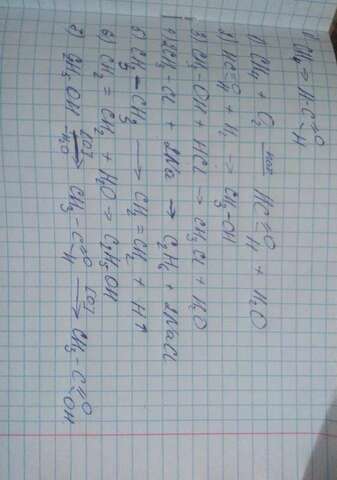 CH4 → H-C=O -H
1) CH4 + O2 → HC=O H + H2O
2) HC=O H + H2 → CH3-OH
3) CH3-OH + HCl → CH3Cl + H2O
4) 2CH3-Cl + 2Na → C2H6 + 2NaCl
5) CH3-CH3 → CH2=CH2 + H2↑
6) CH2=CH2 + H2O → C2H5OH
7) C2H5OH [O] -H2O → CH3-C=O -H [O] → CH3-C=O -OH